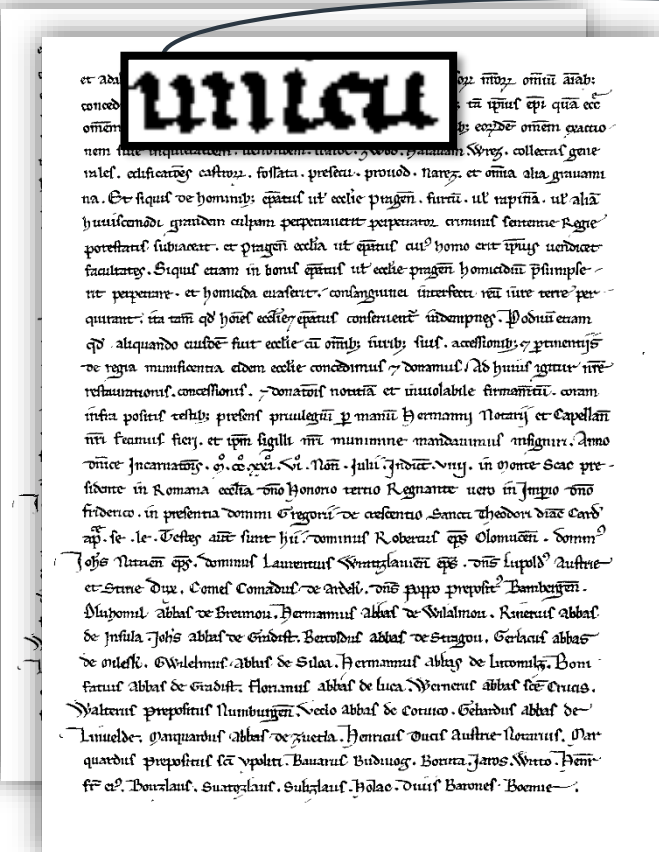 unicu
et
om̄iū
conced
tā ip̄ius ep̄i
om̄em
om̄em exactio
nem collectas gene
rales. edificatōes castroꝝ. fossata. et om̄ia alia grauami
na. Et siquis de hominibꝫ ep̄atus ul' ecclie Pragen̄. furtū. ul' rapinā. ul' aliā
huiuscemodi grandem culpam perpetrauerit perpetrator criminis sententie Regie
potestatis subiaceat. et Pragen̄ ecclīa ul' ep̄atus cui' homo erit ip̄ius uendicet
facultates. Siquis etiam in bonis ep̄atus ul' ecclie pragen̄ homicidiū p̄sumpse
rit perpetrare. et homicida euaserit. consanguinei interfecti reū iure terre per
quirant. ita tam̄ qd' hoīes ecclie ⁊ ep̄atus conseruent᷑ indempnes. Podiuū etiam
qd' aliquando eiusdē fuit ecclie cū om̄ibꝫ iuribꝫ suis. accessionibꝫ ⁊ ꝑtinentijs
de regia munificentia eidem ecclie concedimus ⁊ donamus. Ad huius igitur nr̄e
restaurationis. concessionis. ⁊ donatōis notitiā et inuiolabile firmam̄tū. coram
infra positis testibꝫ presens priuilegiū ꝑ manū Hermanni Notarij et Capellani
nr̄i fecimus fieri. et ip̄m sigilli nr̄i munimine mandauimus insigniri. Anno
dn̄ice Incarnatōis. Non̄. Julii. Indict̄. viiij. in Monte Scac pre
sidente in Romana ecclīa dn̄o Honorio tertio Regnante uero in Imp̄io dn̄o
friderico. in presentia domini Gregorii de crescentio Sancti Theodori diac̄ Card'
ap̄. se. le. Testes aut̄ sunt hii. dominus Robertus ep̄s Olomucen̄. domin'
Joh̄s Nitrien̄ ep̄s. dominus Laurentius Wratizlauien̄ ep̄s. dn̄s Lupold' Austrie
et Stirie Dux. Comes Conradus de Ardeli. dn̄s poppo preposit' Bambergen̄.
Dluhomil abbas de Breunou. Hermannus abbas de Wilalmou. Riuerius abbas
de Insula. Joh̄s abbas de Gradist. Bertoldus abbas de Stragou. Gerlacus abbas
de milesk. Gwilelmus abbas de Siloa. Hermannus abbas de Lutomilꝫ. Boni
fatius Abbas de Gradist. Florianus abbas de luca. Wernerus abbas sc̄e Crucis.
Walterus Prepositus Numburgen̄. Veclo abbas de Cotuico. Gebardus abbas de
Liniuelde. Marquardus abbas de zuetla. Henricus Ducis Austrie Notarius. Mar
quardus Prepositus sc̄i ypoliti. Bauarus Budiuog. Boriuta. Jaros. Witto. Henr̄
fr̄ ei'. Bourzlaus. Suatozlaus. Sulizlaus. Holac. Diuis Barones Boemie.